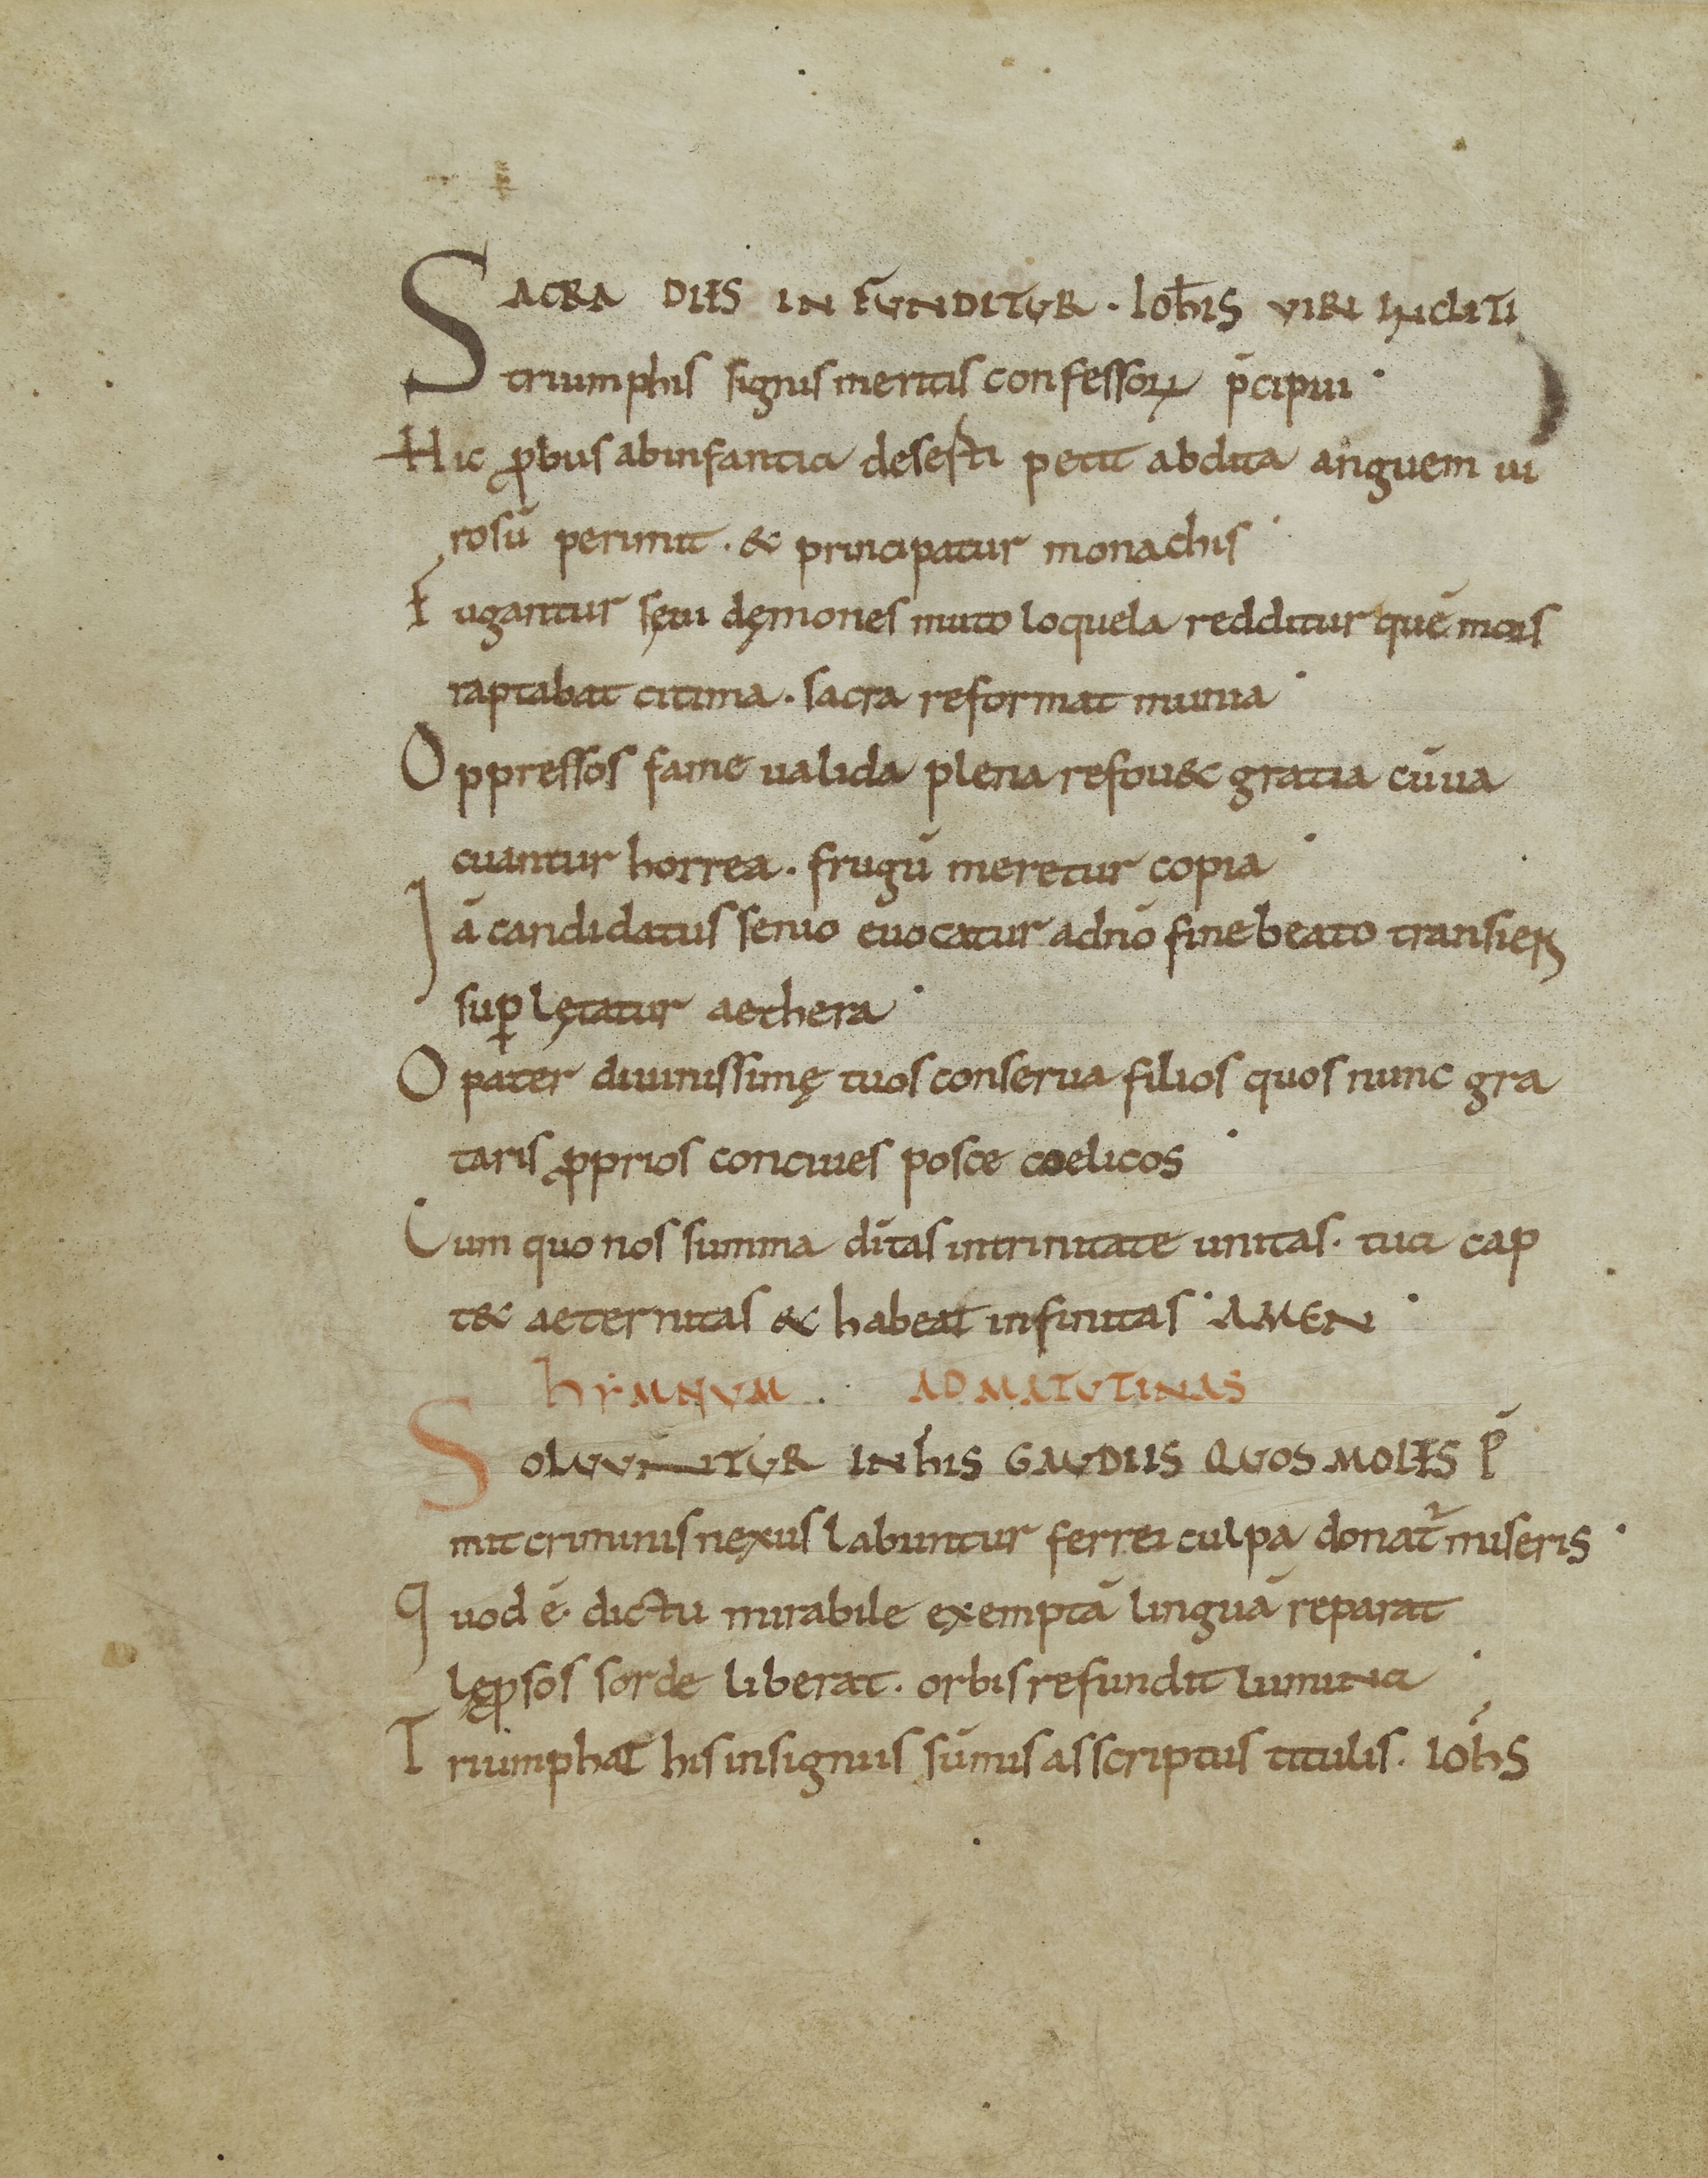 SACRA DIES IN FUNDITUR · Ioh̄is VIRI INCLITI
triumphis signis meritis confessoꝝ p̄cipui ·
Hic ꝓbus abinfantia deserti petit abdita anguem ui
rosū perimit · & principatur monachis ·
Fugantur sęui dęmones muto loquela redditur quē mors
raptabat citima · sacra reformat munia ·
Oppressos fame ualida plena refou& gratia cū ua
cuantur horrea · frugū meretur copia ·
Iā candidatus senio euocatur addnō fine beato transiens
suꝑ lętatur aethera ·
O pater diuinissimę tuos conserua filios quos nunc gra
taris ꝓprios conciues posce coelicos ·
Cum quo nos summa dītas intrinitate unitas · tua cap
t& aeternitas & habeat infinitas · AMEN ·
hYMNUM · AD MATUTINAS
SOLUUNTUR INhIS GAUDIIS QUOS MOLES P̄
mit criminis nexus labuntur ferrei culpa donat᷑ miseris ·
Quod ē dictu mirabile exemptā linguā reparat
lęꝓsos sorde liberat · orbis refundit lumina ·
Triumphat his insigniis sūmis asscriptus titulis · Ioh̄s